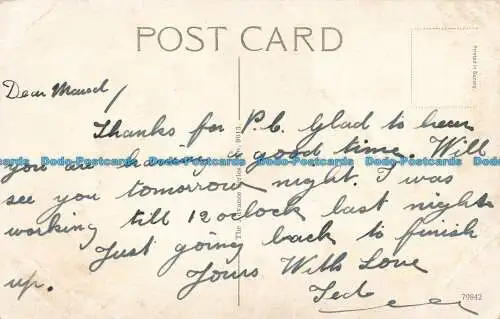 POST CARD
Printed in Saxony.
Dear
Thanks for P.C. Glad to hear
you are having a good time. Will
Dodo-Postcards Dodo-Postcards Dodo-Postcards Dodo-Postcards Dodo-Postcards
see you tomorrow night. I was
working till 12 oclock last night
Just going back to finish
up.
Yours With Love
Ted
The
Series
79942